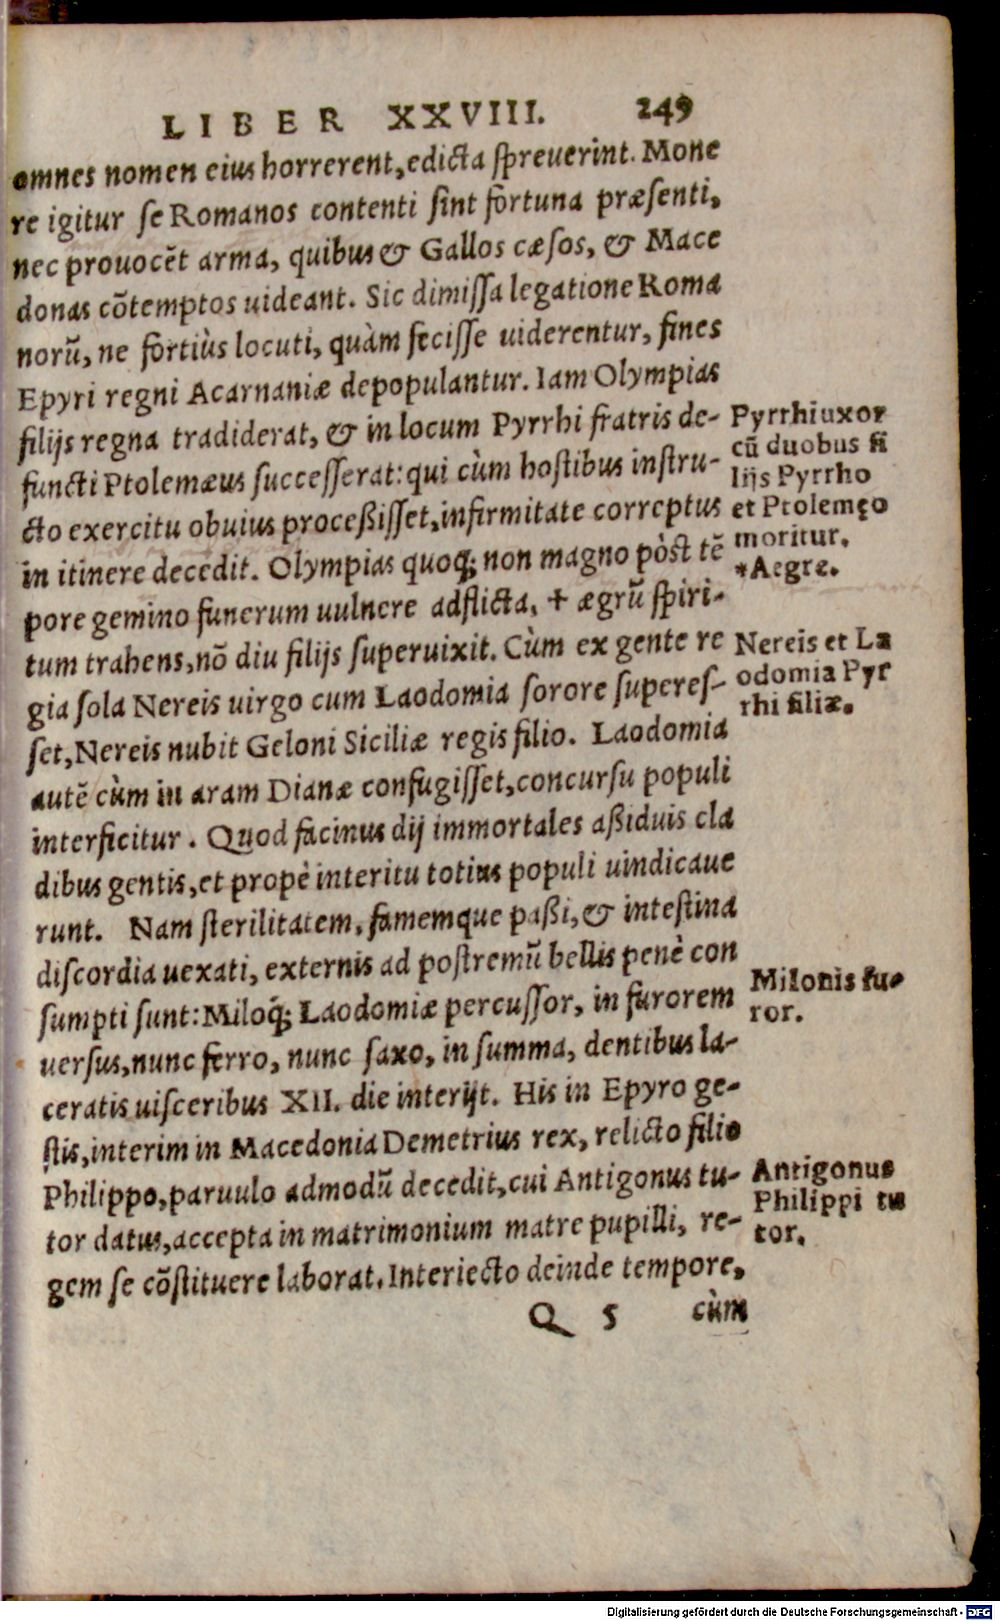 LIBER XXVIII. 249
omnes nomen eius horrerent, edicta spreuerint. Mone
re igitur se Romanos contenti sint fortuna præsenti,
nec prouocẽt arma, quibus & Gallos cæsos, & Mace
donas cõtemptos uideant. Sic dimissa legatione Roma
norũ, ne fortiùs locuti, quàm fecisse uiderentur, fines
Epyri regni Acarnaniæ depopulantur. Iam Olympias
filijs regna tradiderat, & in locum Pyrrhi fratris de-
functi Ptolemæus successerat: qui cùm hostibus instru-
cto exercitu obuius proceßisset, infirmitate correptus
in itinere decedit. Olympias quoq; non magno pòst tẽ
pore gemino funerum uulnere adflicta, + ægrũ spiri-
tum trahens, nõ diu filijs superuixit. Cùm ex gente re
gia sola Nereis uirgo cum Laodomia sorore superes-
set, Nereis nubit Geloni Siciliæ regis filio. Laodomia
autẽ cùm in aram Dianæ confugisset, concursu populi
interficitur. Quod facinus dij immortales aßiduis cla
dibus gentis, et propè interitu totius populi uindicaue
runt. Nam sterilitatem, famemque paßi, & intestina
discordia uexati, externis ad postremũ bellis penè con
sumpti sunt: Miloq́; Laodomiæ percussor, in furorem
uersus, nunc ferro, nunc saxo, in summa, dentibus la-
ceratis uisceribus XII. die interijt. His in Epyro ge-
stis, interim in Macedonia Demetrius rex, relicto filio
Philippo, paruulo admodũ decedit, cui Antigonus tu-
tor datus, accepta in matrimonium matre pupilli, re-
gem se cõstituere laborat. Interiecto deinde tempore,
Q 5 cùm
Pyrrhi uxor
cũ duobus fi
lijs Pyrrho
et Ptolemęo
moritur.
*Aegre.
Nereis et La
odomia Pyr
rhi filiæ.
Milonis fu-
ror.
Antigonus
Philippi tu
tor.
Digitalisierung gefördert durch die Deutsche Forschungsgemeinschaft - DFG